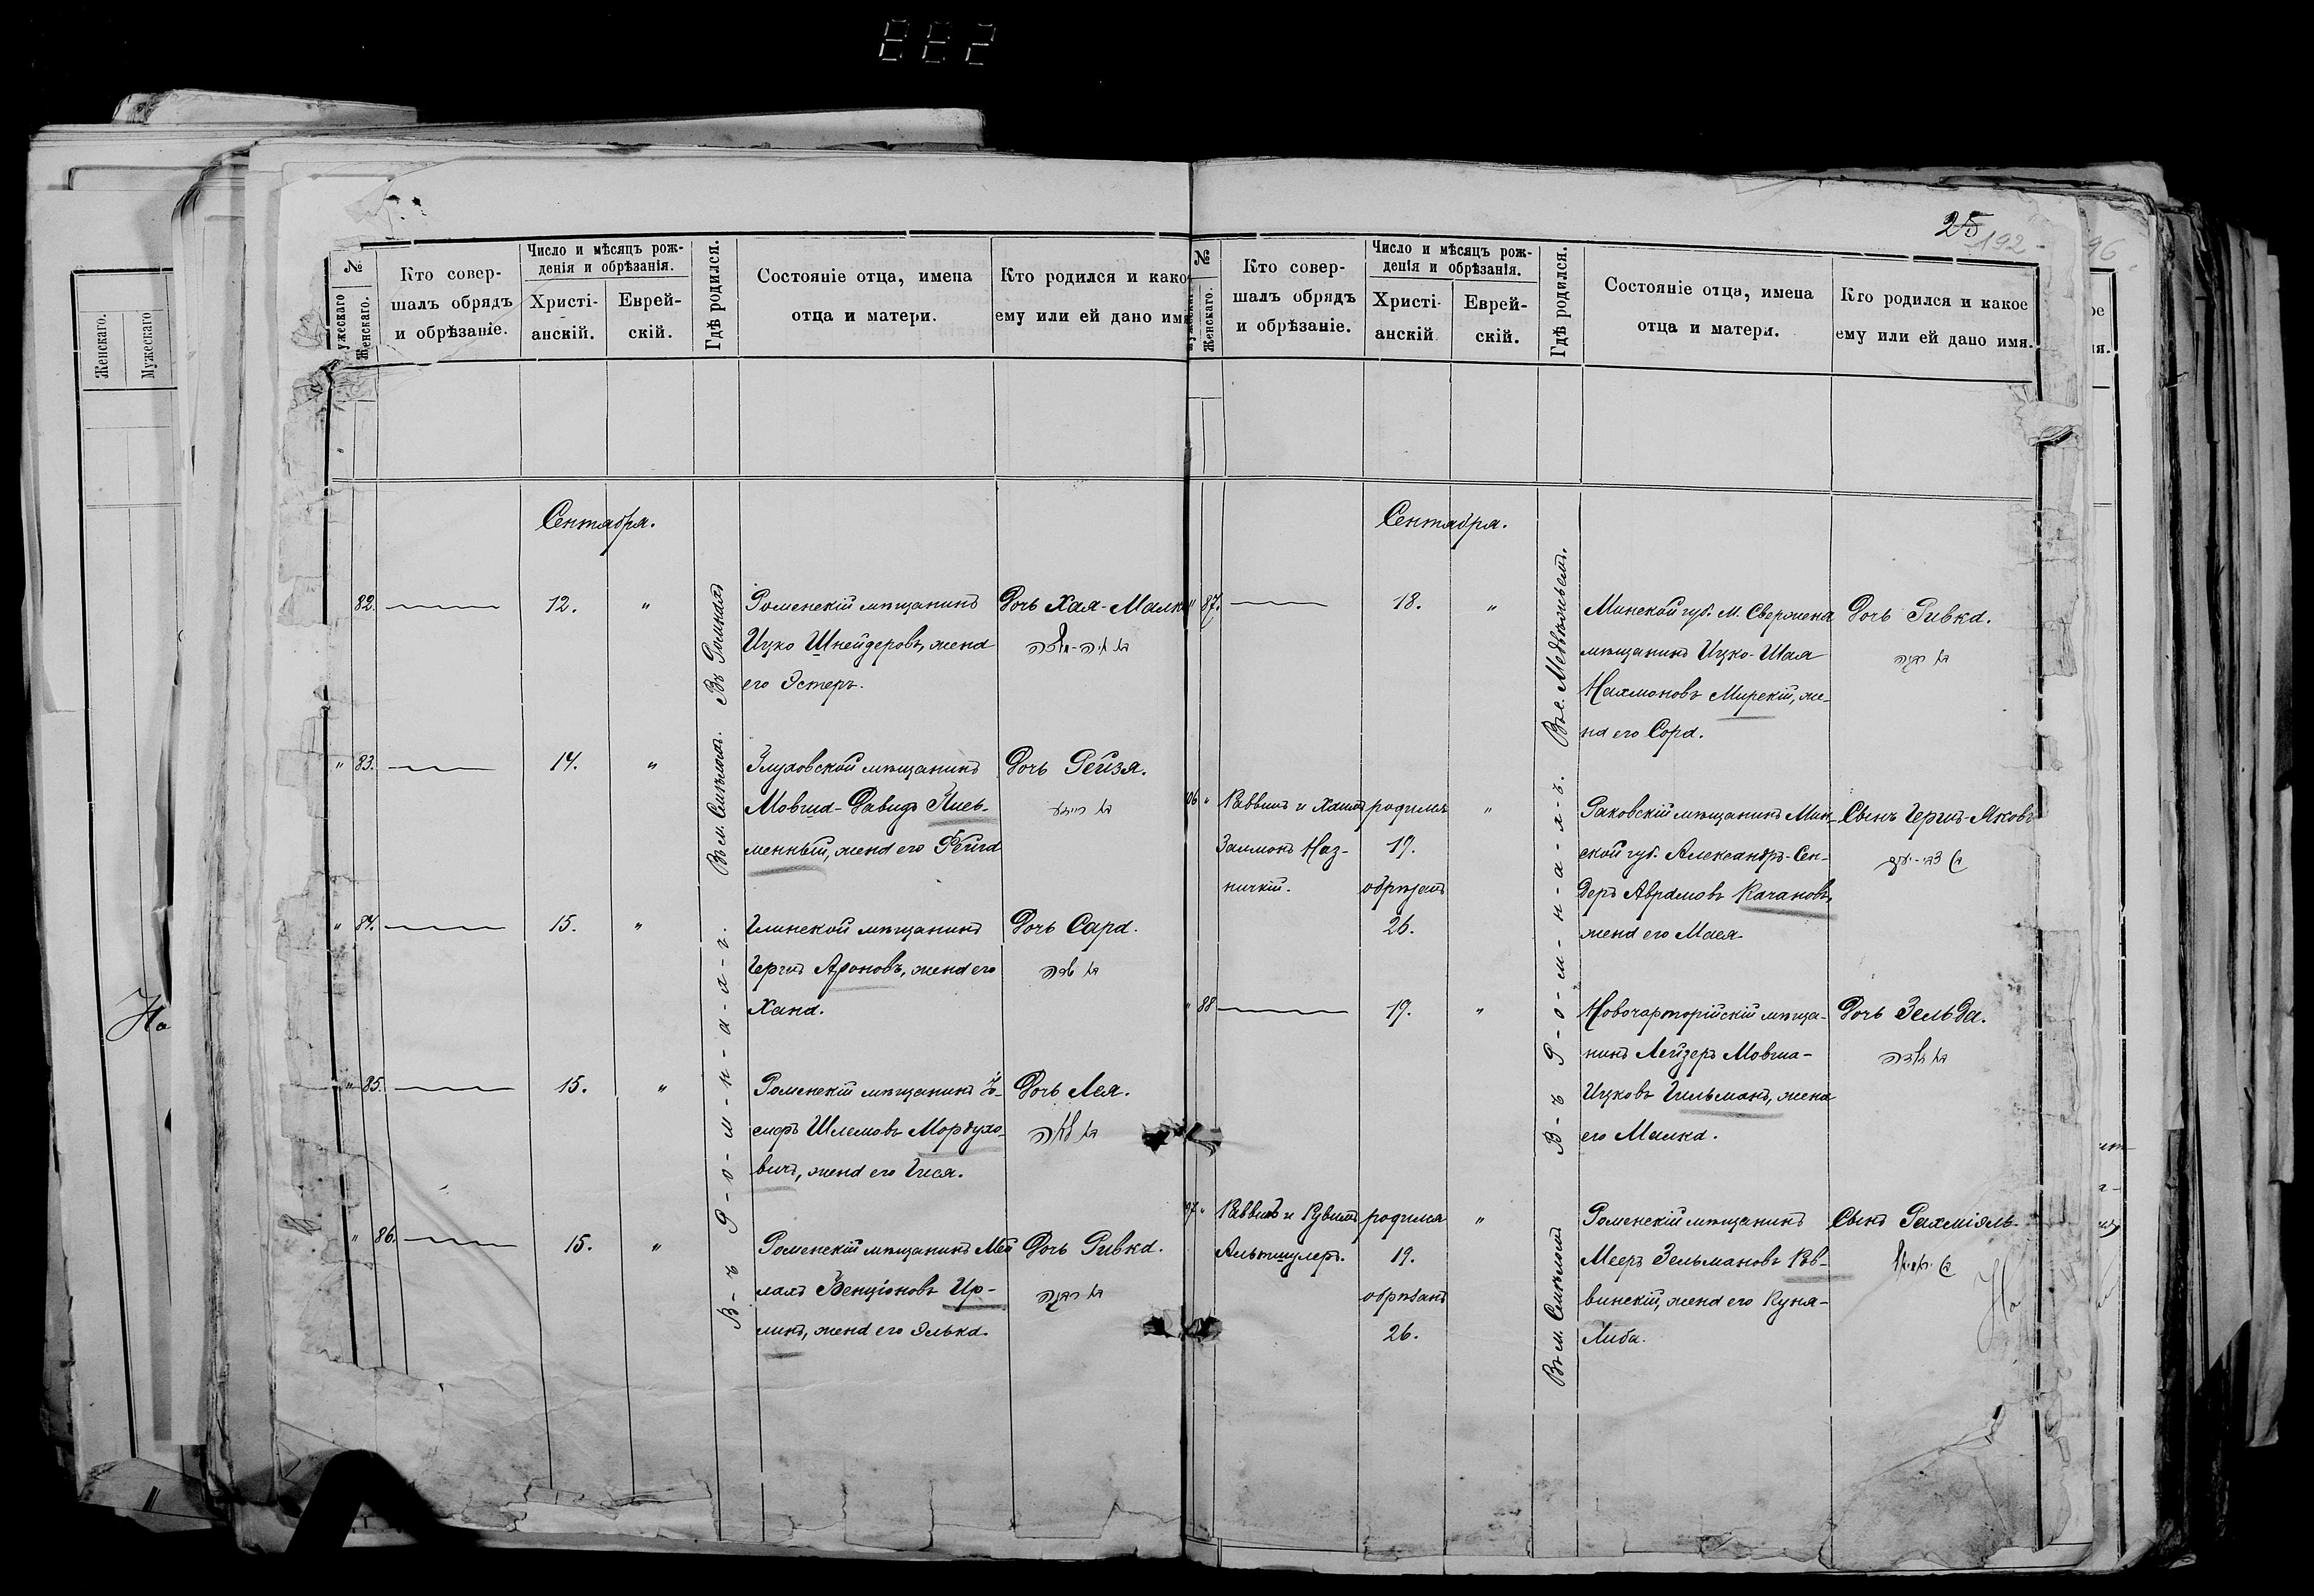 25
192
96
№
Мужескаго
Женскаго.
Кто совер-
шалъ обрядъ
и обрѣзаніе.
Число и мѣсяцъ рож-
денія и обрѣзанія.
Христі-
анскій.
Еврей-
скій.
Гдѣ родился.
Состояніе отца, имена
отца и матери.
Кто родился и како
ему или ей дано имя
Сентября.
82.
12.
"
Въ Ромнахъ
Роменскій мѣщанинъ
Ицко Шнейдеровъ, жена
его Эстеръ.
Дочь Хая-Малка
"
83.
14.
"
Въ м. Смѣломъ.
Глуховской мѣщанинъ
Мовша-Давидъ
менный, жена его Фейга
Дочь Рейза.
"
84.
15.
"
В-ъ Р-о-м-н-а-х-ъ.
Глинской мѣщанинъ
Герша Ароновъ, жена его
Хана.
Дочь Сара.
בת שרה
"
85.
15.
"
Роменскій мѣщанинъ
Шлемовъ Мордухо-
вичъ, жена его Гися.
Дочь Лея.
בת לאה
"
86.
15.
"
Роменскій мѣщанинъ Мей
лахъ Бенціоновъ Ир-
линъ, жена его Элька.
Дочь Ривка.
בת רבקה
№
Женскаго.
Кто совер-
шалъ обрядъ
и обрѣзаніе.
Число и мѣсяцъ рож-
денія и обрѣзанія.
Христі-
анскій
Еврей-
скій.
Гдѣ родился.
Состояніе отца, имена
отца и матери.
Кто родился и какое
ему или ей дано имя.
Сентября.
"
87.
18.
"
Въ с. Медвѣжьемъ.
Минской губ. м. Свержена
мѣщанинъ Ицко-Шая
Нахмановъ Мирскій, же-
на его Сора.
Дочь Ривка.
בת רבקה
06
"
Раввинъ и Хаимъ
Залмонъ Наз-
ничкій.
родился
19.
обрѣзанъ
26.
"
В-ъ Р-о-м-н-а-х-ъ.
Раковскій мѣщанинъ Мин-
ской губ. Александръ-Сен-
деръ Абрамовъ Качановъ,
жена его Мася
Сынъ Герцъ-Яковъ
"
88
19.
"
Новочарторійскій мѣща-
нинъ Лейзеръ Мовша-
Ицковъ Гильманъ, жена
его Малка.
Дочь Зельда.
בת זלדה
07
"
Раввинъ и Рувимъ
Альтшулеръ.
родился
19.
обрѣзанъ
26.
"
Въ м. Смѣломъ
Роменскій мѣщанинъ
Мееръ Зельмановъ Рав-
винскій, жена его Куня-
Либа.
Сынъ Рахміэль.
На
На
Женскаго.
Мужескаго